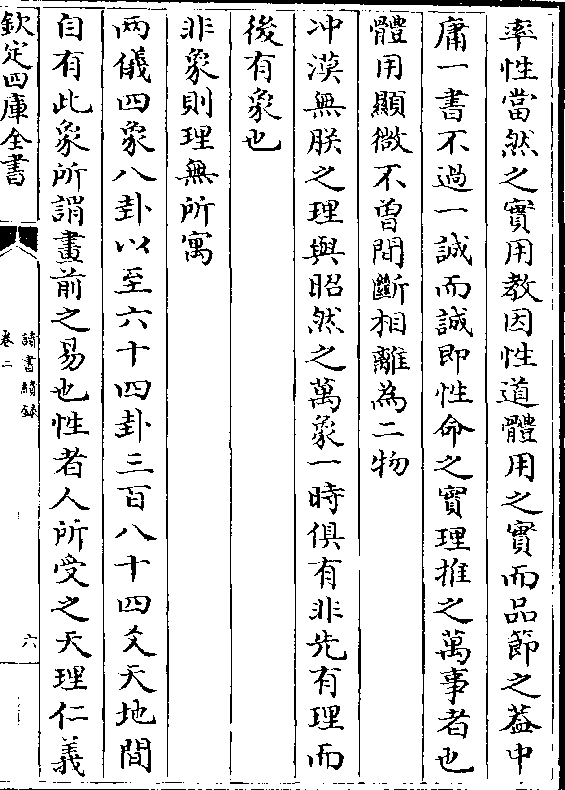 率性當然之實用教因性道體用之實而品節之葢中
庸一書不過一誠而誠即性命之實理推之萬事者也
體用顯微不曾間斷相離為二物
冲漠無朕之理與昭然之萬象一時俱有非先有理而
後有象也
非象則理無所寓
兩儀四象八卦以至六十四卦三百八十四爻天地間
自有此象所謂畫前之易也性者人所受之天理仁義
欽定四庫全書
讀書續録
卷二
六